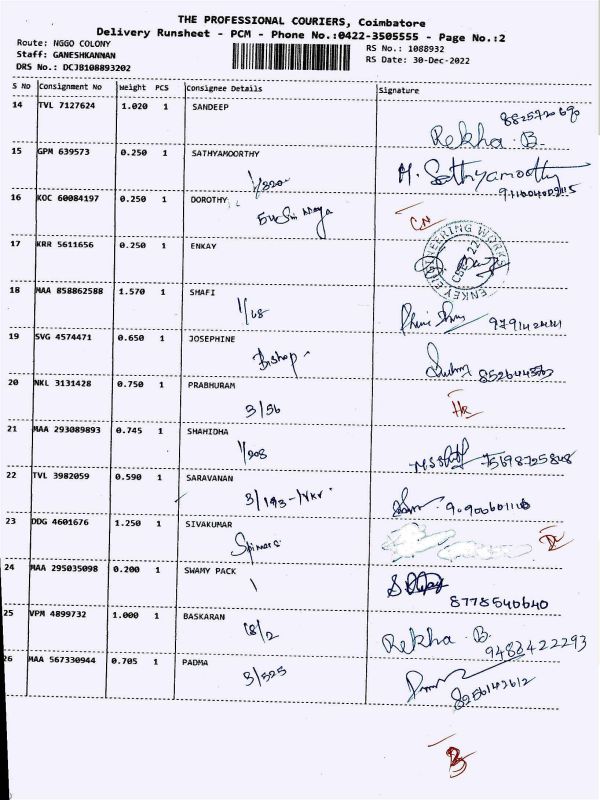 THE PROFESSIONAL COURIERS, Coimbatore
Delivery Runsheet - PCM - Phone No.:0422-3505555 - Page No.:2
Route: NGGO COLONY
RS No.: 1088932
Staff: GANESHKANNAN
RS Date: 30-Dec-2022
DRS No.: DCJB108893202
S No Consignment No Weight PCS Consignee Details Signature
14 TVL 7127624 1.020 1 SANDEEP
Rekha B.
15 GPM 639573 0.250 1 SATHYAMOORTHY
M. Sathyamoorthy
16 KOC 60084197 0.250 1 DOROTHY
CN
17 KRR 5611656 0.250 1 ENKAY
ENGINEERING WORKS
18 MAA 858862588 1.570 1 SHAFI
1/68
19 SVG 4574471 0.650 1 JOSEPHINE
Bishop
20 NKL 3131428 0.750 1 PRABHURAM
3/56
21 MAA 293089893 0.745 1 SHAHIDHA
1/208
22 TVL 3982059 0.590 1 SARAVANAN
3/193
23 DDG 4601676 1.250 1 SIVAKUMAR
24 MAA 295035098 0.200 1 SWAMY PACK
8778540640
25 VPM 4899732 1.000 1 BASKARAN
18/2
Rekha B.
9488422293
26 MAA 567330944 0.705 1 PADMA
3/525